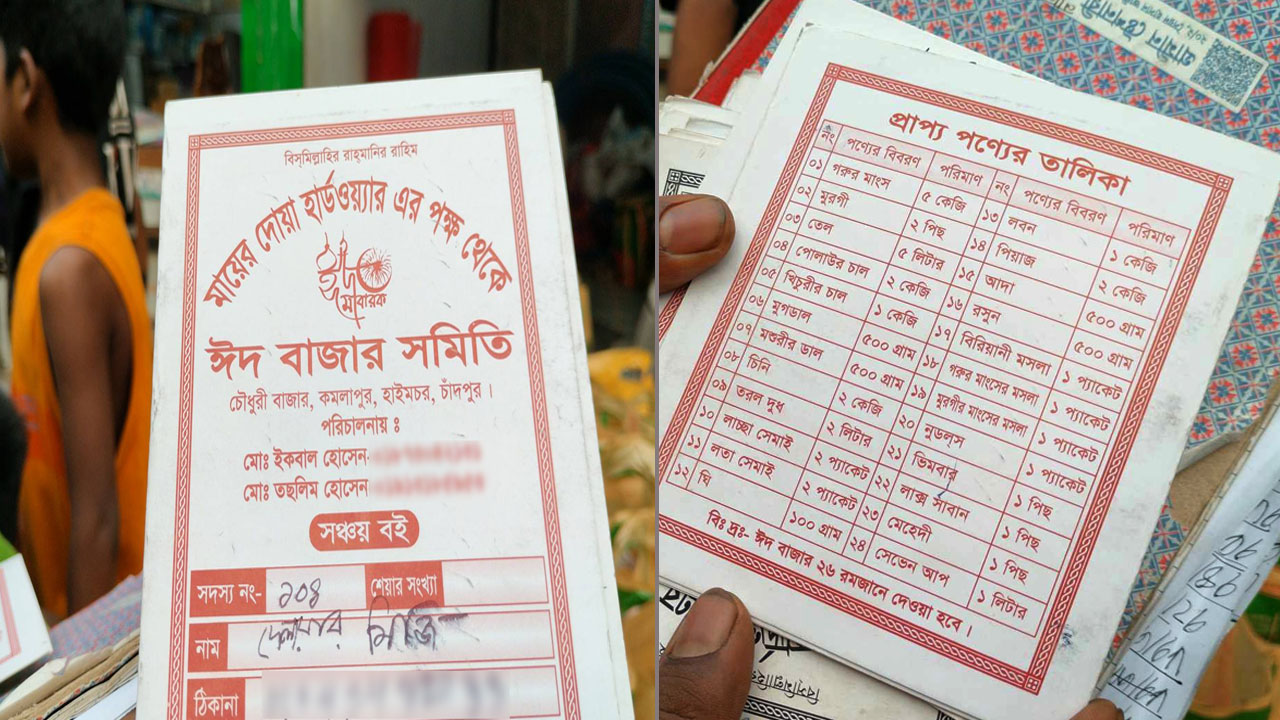 বিস্‌মিল্লাহির রাহ্‌মানির রাহিম
মায়ের দোয়া হার্ডওয়্যার এর পক্ষ থেকে
ঈদ মোবারক
ঈদ বাজার সমিতি
চৌধুরী বাজার, কমলাপুর, হাইমচর, চাঁদপুর।
পরিচালনায় ঃ
মোঃ ইকবাল হোসেন-
মোঃ তছলিম হোসেন
সঞ্চয় বই
সদস্য নং- ১০৪ শেয়ার সংখ্যা
নাম দেলোয়ার মিজি
ঠিকানা
প্রাপ্য পণ্যের তালিকা
নং পণ্যের বিবরণ পরিমাণ নং পণ্যের বিবরণ পরিমাণ
০১ গরুর মাংস ৫ কেজি ১৩ লবন ১ কেজি
০২ মুরগী ২ পিছ ১৪ পিয়াজ ২ কেজি
০৩ তেল ৫ লিটার ১৫ আদা ৫০০ গ্রাম
০৪ পোলাউর চাল ২ কেজি ১৬ রসুন ৫০০ গ্রাম
০৫ খিচুরীর চাল ১ কেজি ১৭ বিরিয়ানী মসলা ১ প্যাকেট
০৬ মুগডাল ৫০০ গ্রাম ১৮ গরুর মাংসের মসলা ১ প্যাকেট
০৭ মশুরীর ডাল ৫০০ গ্রাম ১৯ মুরগীর মাংসের মসলা ১ প্যাকেট
০৮ চিনি ২ কেজি ২০ নুডলস ১ প্যাকেট
০৯ তরল দুধ ২ লিটার ২১ ভিমবার ১ পিছ
১০ লাচ্ছা সেমাই ২ প্যাকেট ২২ লাক্স সাবান ১ পিছ
১১ লতা সেমাই ২ প্যাকেট ২৩ মেহেদী ১ পিছ
১২ ঘি ১০০ গ্রাম ২৪ সেভেন আপ ১ লিটার
বিঃ দ্রঃ- ঈদ বাজার ২৬ রমজানে দেওয়া হবে।